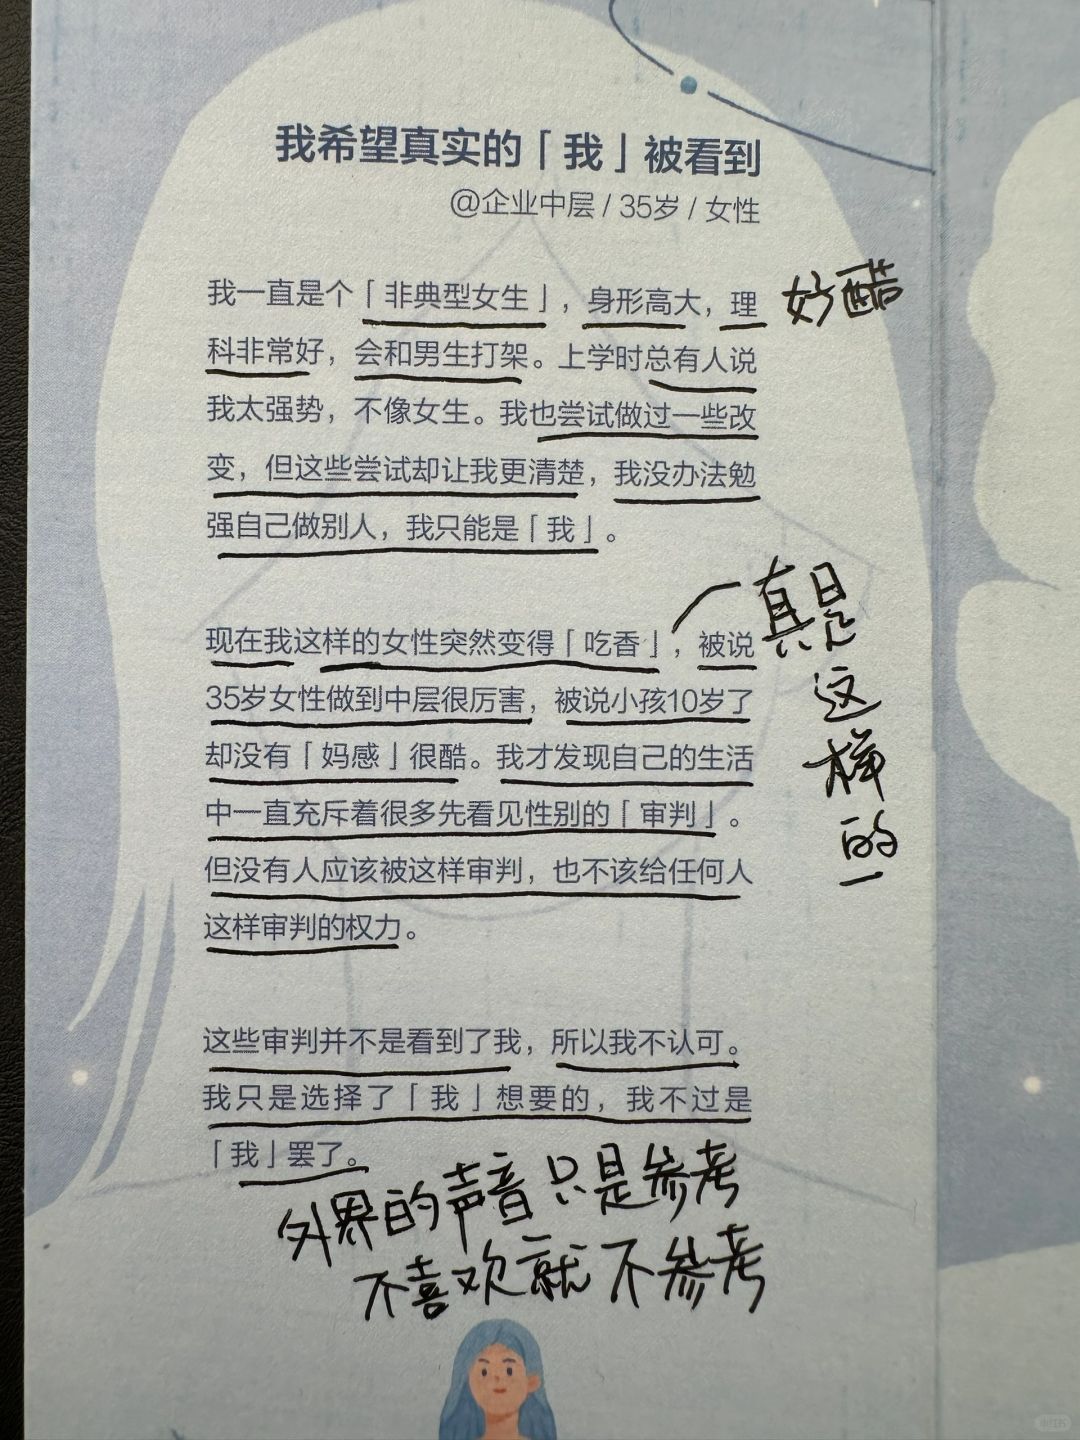 我希望真实的「我」被看到
@企业中层 / 35岁 / 女性
我一直是个「非典型女生」，身形高大，理
科非常好，会和男生打架。上学时总有人说
我太强势，不像女生。我也尝试做过一些改
变，但这些尝试却让我更清楚，我没办法勉
强自己做别人，我只能是「我」。
好酷
现在我这样的女性突然变得「吃香」，被说
35岁女性做到中层很厉害，被说小孩10岁了
却没有「妈感」很酷。我才发现自己的生活
中一直充斥着很多先看见性别的「审判」。
但没有人应该被这样审判，也不该给任何人
这样审判的权力。
真是
这
样
的
这些审判并不是看到了我，所以我不认可。
我只是选择了「我」想要的，我不过是
「我」罢了。
外界的声音只是参考
不喜欢就不参考
小红书